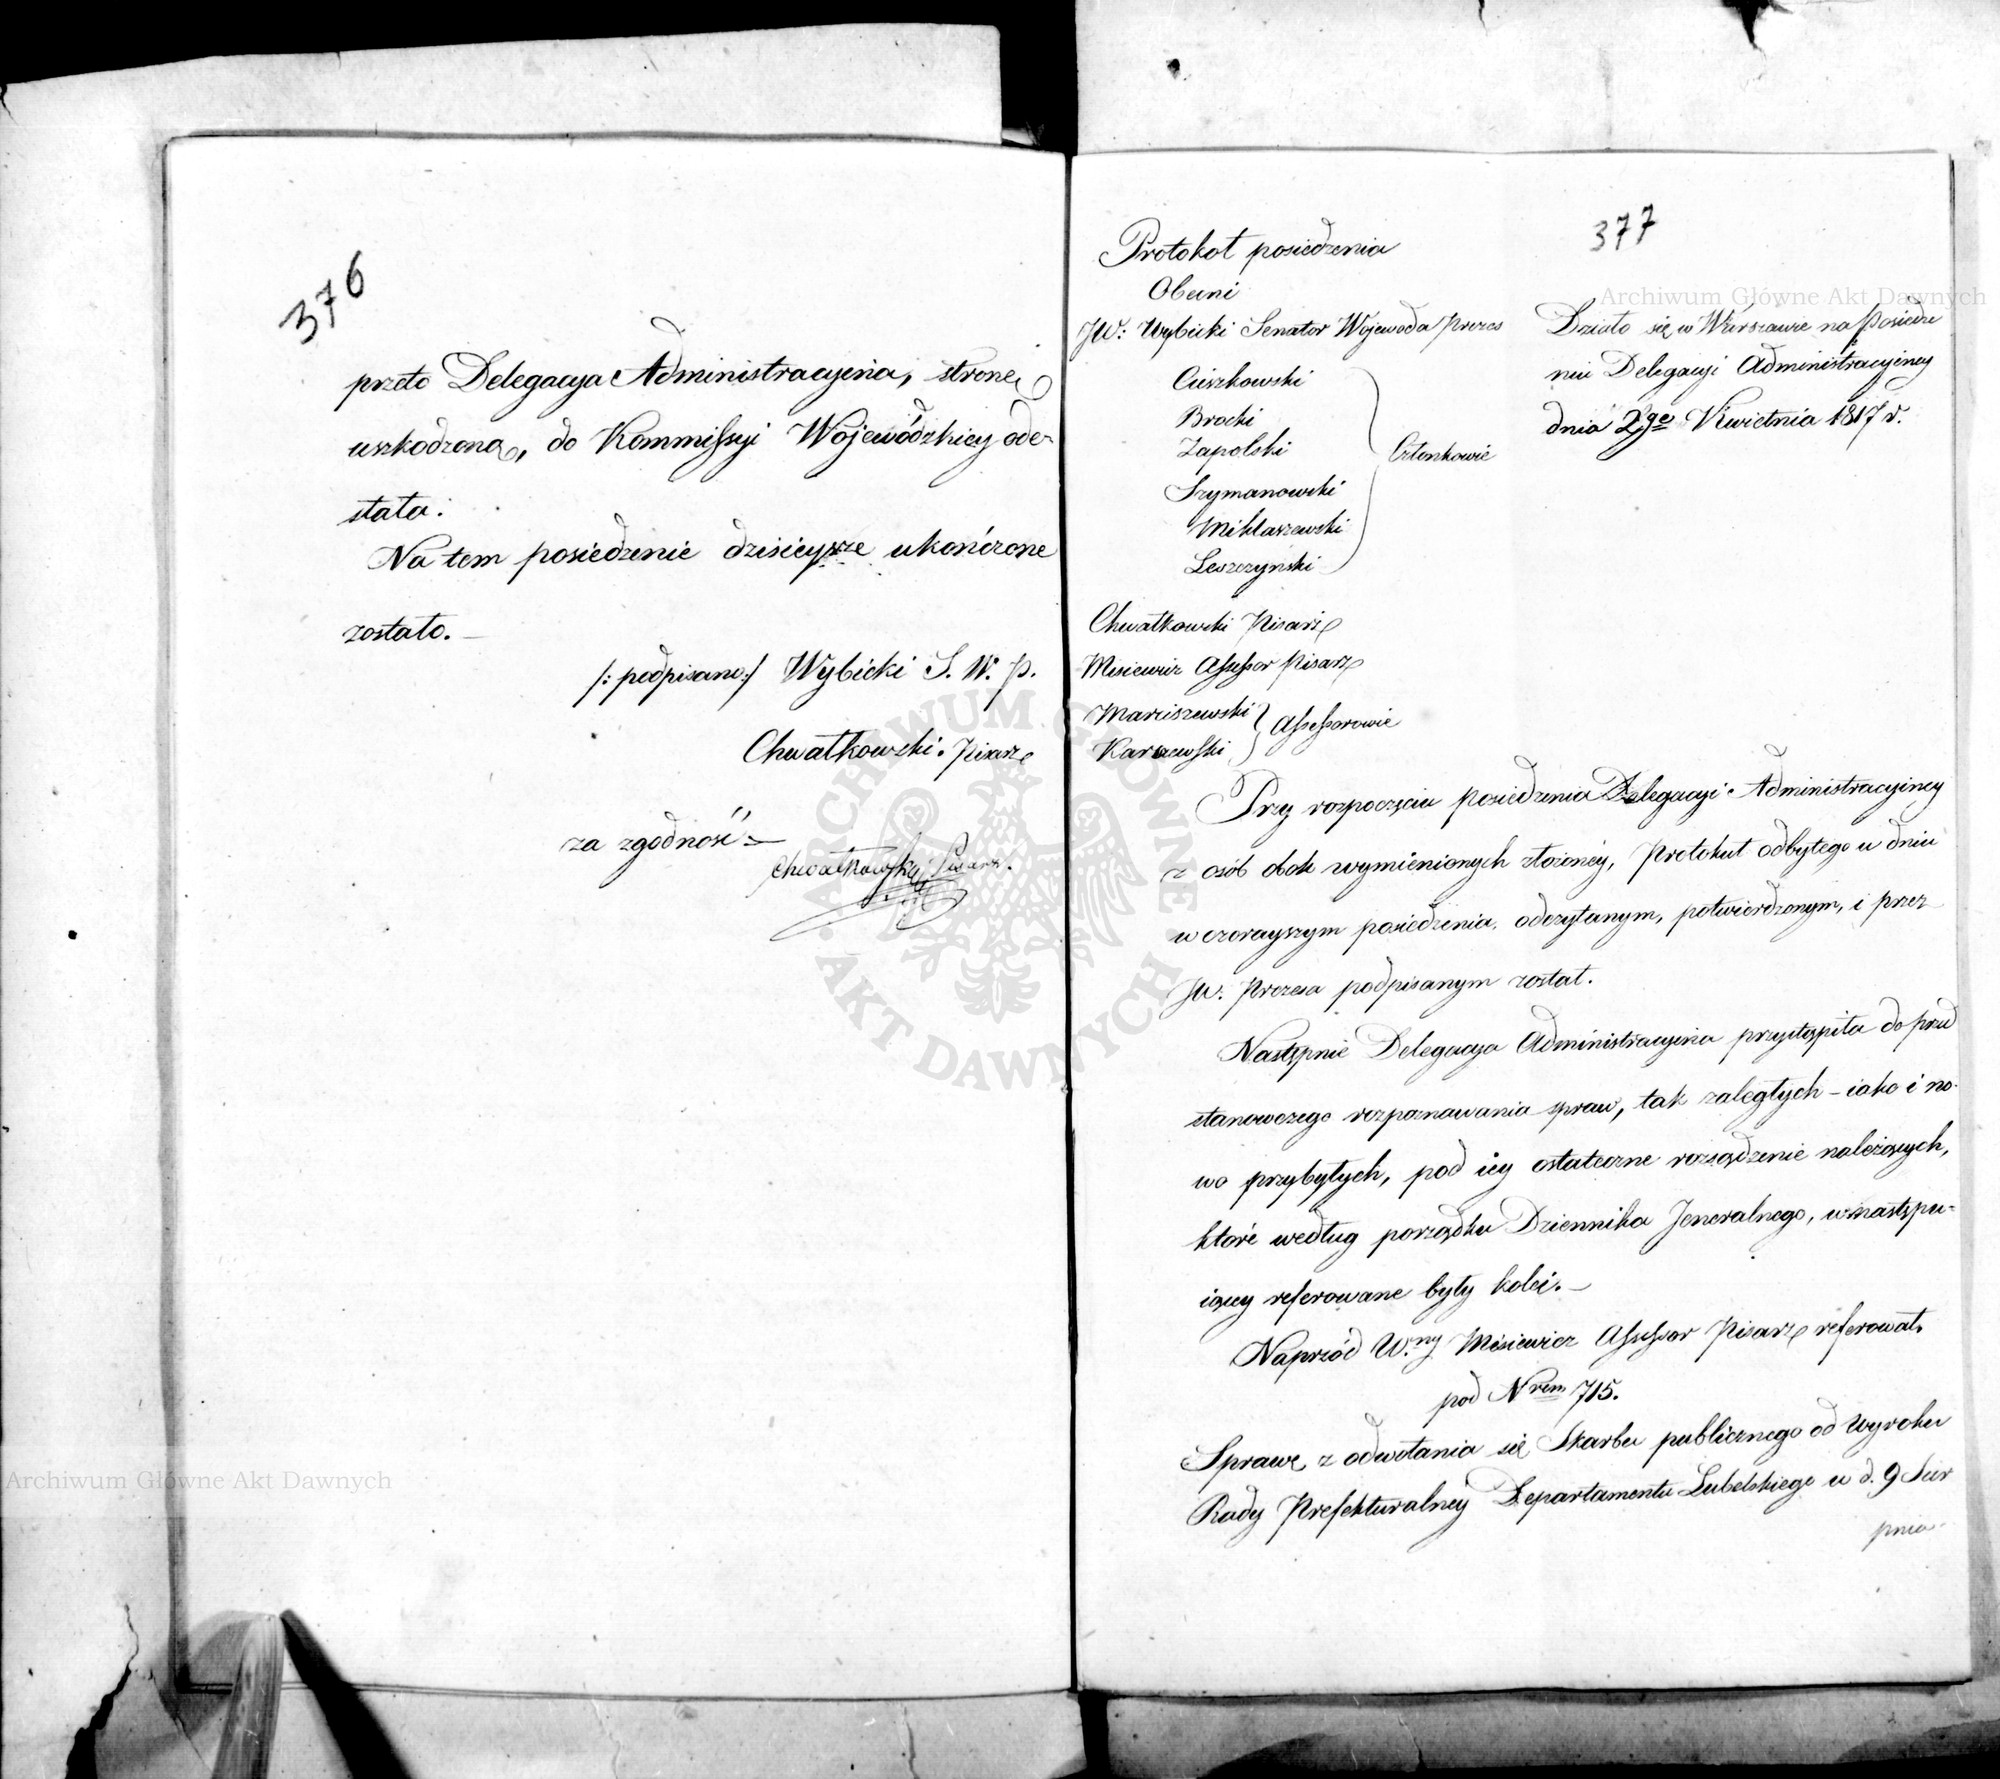 376
przeto Delegacya Administracyina, stronę
uszkodzoną, do Kommissyi Wojewódzkiey ode-
słała.
Na tem posiedzenie dzisieysze ukończone
zostało. —
/: podpisano :/ Wybicki S. W. P.
Chwałkowski. Pisarz
za zgodność —
Chwałkowski Pisarz.
377
Protokoł posiedzenia
Obecni
JW: Wybicki Senator Wojewoda Prezes
Cieszkowski
Brocki
Zapolski
Szymanowski
Miklaszewski
Leszczyński
Członkowie
Chwałkowski Pisarz
Misiewicz Assessor Pisarz
Marciszewski
Karszewski
Assessorowie
Działo się w Warszawie na Posiedze
niu Delegacyi Administracyiney
dnia 2go Kwietnia 1817 r.
Przy rozpoczęciu posiedzenia Delegacyi Administracyiney
z osób obok wymienionych złożoney, Protokuł odbytego w dniu
wczorayszym posiedzenia, odczytanym, potwierdzonym, i przez
JW. Prezesa podpisanym został.
Następnie Delegacya Administracyina przystąpiła do przed
stanowczego rozpoznawania spraw, tak zaległych – iako i no-
wo przybyłych, pod iey ostateczne rozsądzenie należących,
które według porządku Dziennika Jeneralnego, w następu-
iącey referowane były kolei. —
Naprzód W.ny Misiewicz Assessor Pisarz referował.
pod Nrem 715.
Sprawę z odwołania się Skarbu publicznego od Wyroku
Rady Prefekturalney Departamentu Lubelskiego w d. 9 Sier
pnia
Archiwum Główne Akt Dawnych
Archiwum Główne Akt Dawnych
ARCHIWUM GŁÓWNE · AKT DAWNYCH ·